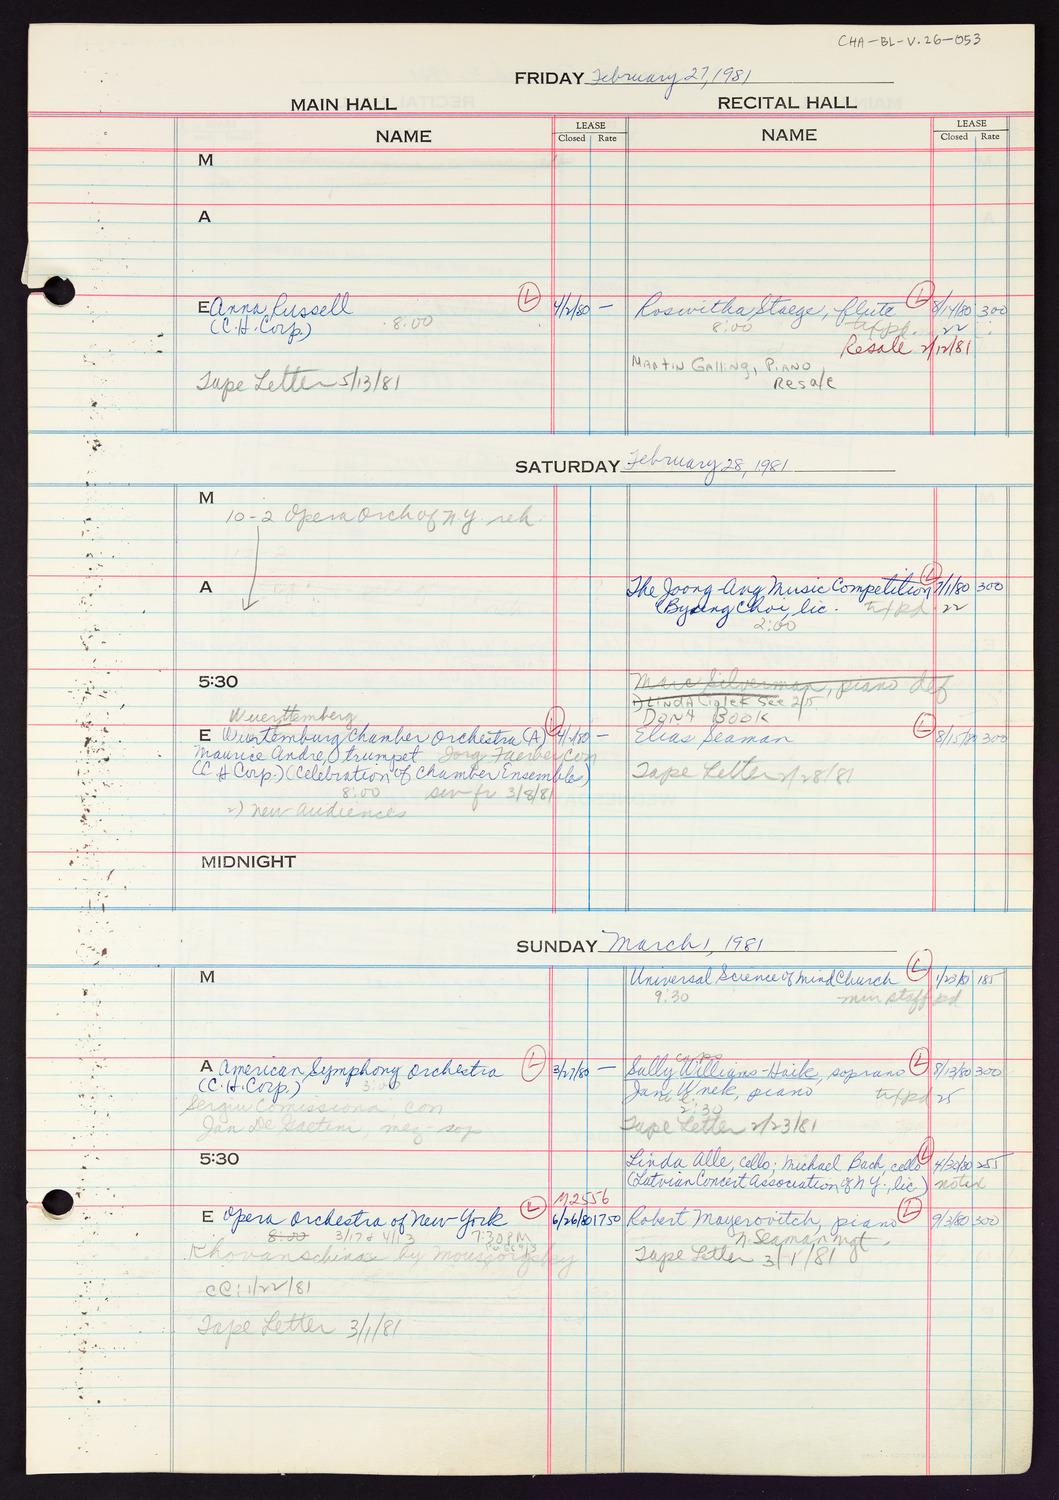 CHA-BL-V.26-053
FRIDAY February 27, 1981
MAIN HALL RECITAL HALL
NAME LEASE Closed Rate NAME LEASE Closed Rate
M
A
E Anna Russell L 4/2/80 — Roswitha Staege, flute L 8/14/80 300
(C.H. Corp.) 8:00 8:00 tx/pd. 22
Resale 2/12/81
Martin Galling, Piano
Resale
Tape Letter 5/13/81
SATURDAY February 28, 1981
M
10-2 Opera Orch of N.Y. reh.
A The Joong-Ang Music Competition L 7/1/80 300
(Byung Choi, lic. tx/pd 22
2:00
5:30 Marc Silverman, piano def
1) Linda see 2/15
Don't Book
Wuerttemberg
E Wurtemburg Chamber Orchestra (A) L — Elias Seaman L 8/15/80 300
Maurice Andre, trumpet Jorg Faerber, con
(C.H. Corp.) (Celebration of Chamber Ensembles) Tape Letter 2/28/81
8:00 sw fr 3/8/81
2) New Audiences
MIDNIGHT
SUNDAY March 1, 1981
M Universal Science of Mind Church L 1/23/81 185
9:30 min staff pd
A American Symphony Orchestra L 3/27/80 — Sally Williams-Haik, soprano L 8/13/80 300
(C.H. Corp.) 3:00 Jan Wnek, piano tx/pd 25
Sergiu Comissiona, con 2:30
Jan De Gaetani mez-sop Tape Letter 2/23/81
5:30 Linda Alle, cello; Michael Bach, cello L 4/30/80 255
(Latvian Concert Association of N.Y., lic) noted
M2556
E Opera Orchestra of New York L 6/26/80 1750 Robert Mayerovitch, piano L 9/3/80 300
8:00 3/17 & 4/13 7:30 PM N. Seaman mgt.
Khovanschina by Moussorgsky Tape Letter 3/1/81
CC: 1/22/81
Tape Letter 3/1/81